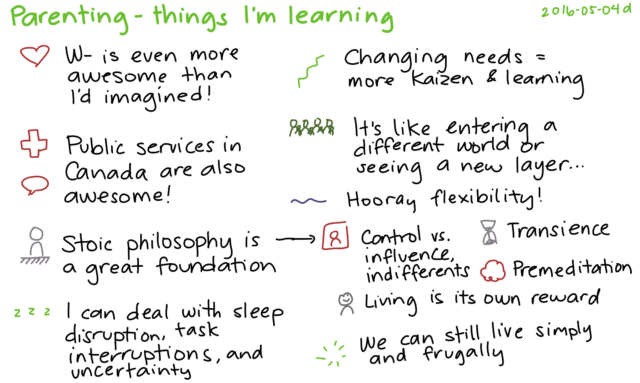 Parenting - things I'm learning
2016-05-04d
W- is even more
awesome than
I'd imagined!
Public services in
Canada are also
awesome!
Stoic philosophy is
a great foundation
z z z I can deal with sleep
disruption, task
interruptions, and
uncertainty
Changing needs =
more Kaizen & learning
It's like entering a
different world or
seeing a new layer...
Hooray flexibility!
Control vs.
influence,
indifferents
Transience
Premeditation
Living is its own reward
We can still live simply
and frugally